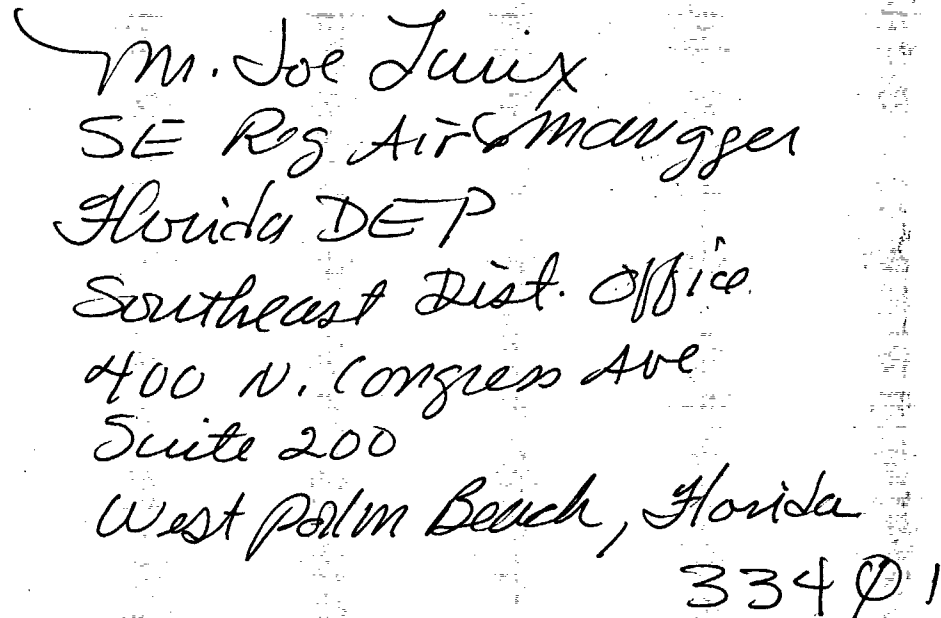 Mr. Joe Lurix
SE Reg Air Manager
Florida DEP
Southeast Dist. Office
400 N. Congress Ave
Suite 200
West Palm Beach, Florida
33401